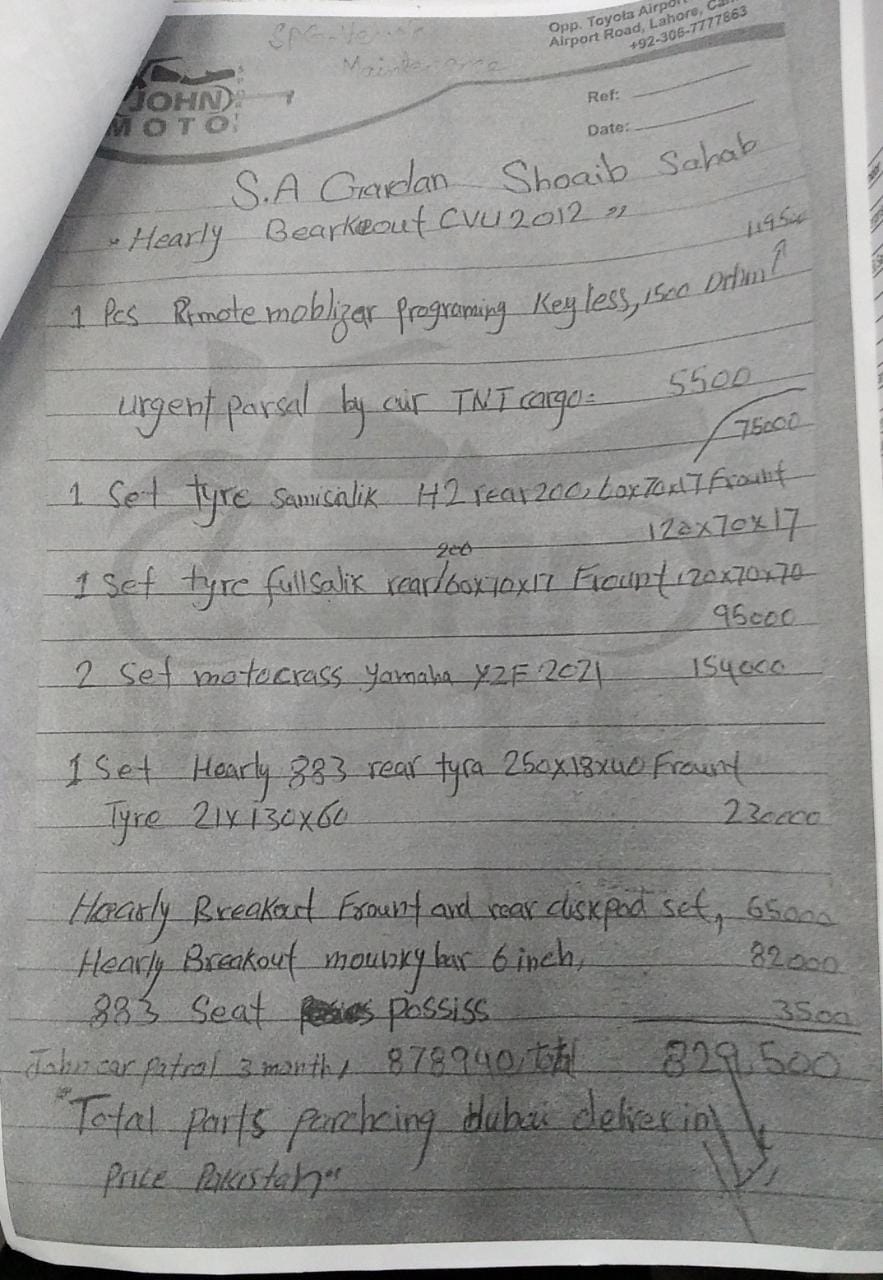 Opp. Toyota Airport
Airport Road, Lahore, Can
+92-306-7777863
SPG-
Maintenance
JOHN
MOTO
Ref:
Date:
S.A Gardan Shoaib Sahab
"Hearly Bearkeout CVU 2012"
119500
1 Pcs Rimote moblizer Programing Key less, 1500 Drhm
urgent parsal by air TNT cargo= 5500
75000
1 Set tyre Samisalik H2 rear 200, 60x70x17 Frount
120x70x17
200
1 Set tyre full Salik rear/60x70x17 Frount 120x70x70
95000
2 Set motocrass Yamaha YZF 2021 154000
1 Set Hearly 883 rear tyra 250x18x40 Frount
Tyre 21x130x60 230000
Hearly Breakout Frount and rear diskpad set, 65000
Hearly Breakout mounky bar 6 inch, 82000
883 Seat Possiss 3500
John car Patrol 3 month, 878940, total 829,500
"Total Parts parcheing dubai deliver in
Price Pakistan"